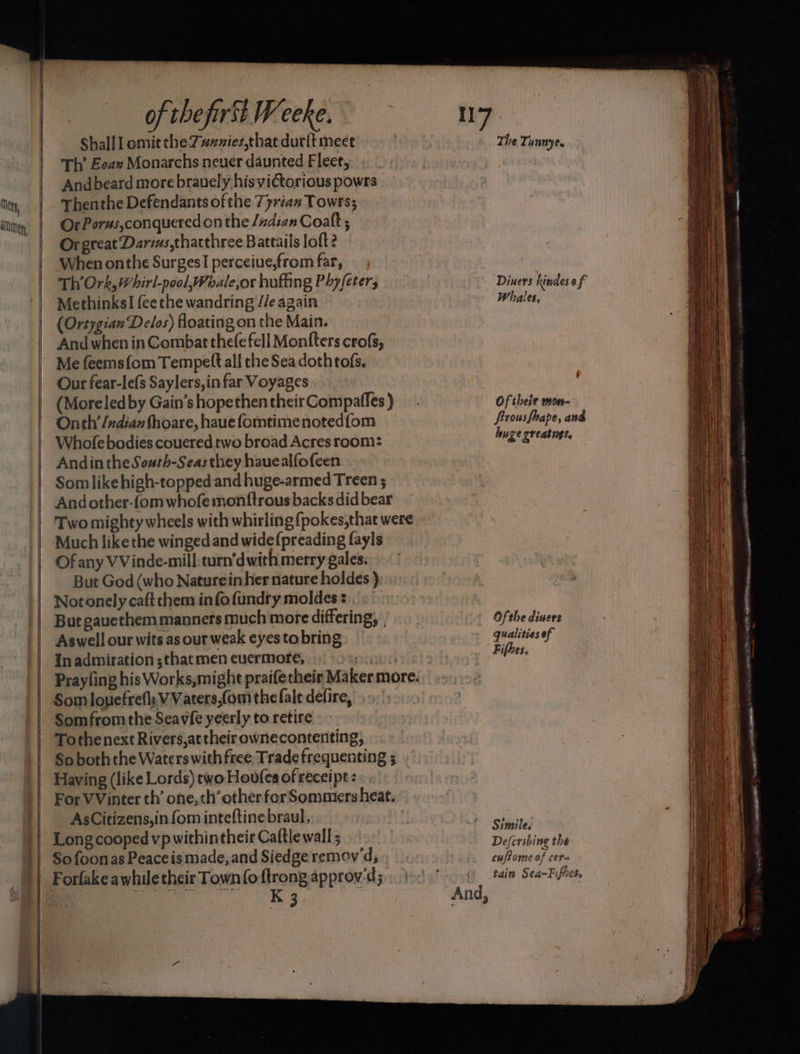 of the first Weeke.
117
Shall I omit the Tunnies, that durſt meet
Th' Eoan Monarchs neuer daunted Fleet,
And beard more brauely his victorious powrs
Then the Defendants of the Tyrian Towrs;
Or Porus, conquered on the Indian Coaſt;
Or great Darius, that three Battails loſt?
When on the Surges I perceiue, from far,
Th' Ork, Whirl-pool, Whale, or huffing Phyſeter,
Methinks I ſee the wandring Ile again
(Ortygian Delos) floating on the Main.
And when in Combat theſe fell Monſters croſs,
Me ſeems ſom Tempeſt all the Sea doth toſs.
Our fear-leſs Saylers, in far Voyages
(More led by Gain's hope then their Compaſſes)
On th' Indian ſhoare, haue ſomtime noted ſom
Whoſe bodies couered two broad Acres room:
And in the South-Seas they haue alſo ſeen
Som like high-topped and huge-armed Treen;
And other-ſom whoſe monſtrous backs did bear
Two mighty wheels with whirling ſpokes, that were
Much like the winged and wide ſpreading ſayls
Of any VVinde-mill turn'd with merry gales.
But God (who Nature in her nature holdes)
Not onely caſt them in ſo ſundry moldes:
But gaue them manners much more differing,
As well our wits as our weak eyes to bring
In admiration; that men euermore,
Prayſing his Works, might praiſe their Maker more.
Som loue freſh VVaters, ſom the ſalt deſire,
Som from the Sea vſe yeerly to retire
To the next Rivers, at their owne contenting,
So both the Waters with free Trade frequenting;
Having (like Lords) two Houſes of receipt:
For VVinter th' one, th' other for Sommers heat.
As Citizens, in ſom inteſtine braul,
Long cooped vp within their Caſtle wall;
So ſoon as Peace is made, and Siedge remov'd,
Forſake a while their Town ſo ſtrong approv'd;
K 3
And,
The Tunnye.
Diuers kindes of
Whales,
Of their mon-
ſtrous ſhape, and
huge greatnes.
Of the diuers
qualities of
Fiſhes.
Simile,
Deſcribing the
cuſtome of cer-
tain Sea-Fiſhes,